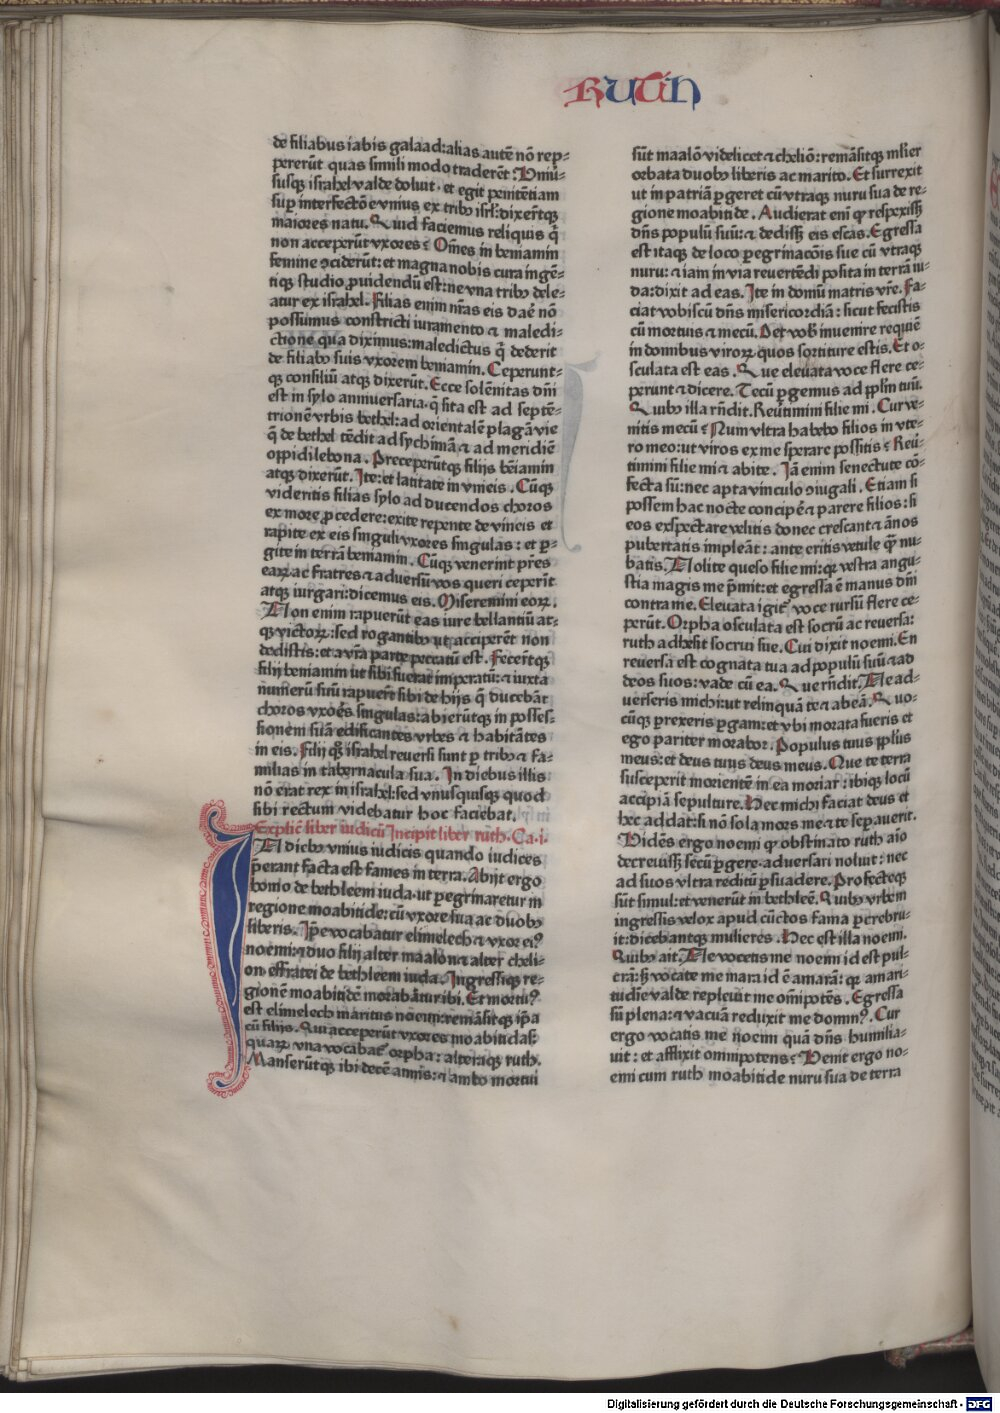 Ruth
de filiabus iabis galaad: alias autē nō rep⸗
pererūt quas simili modo traderēt: Vniū⸗
susqꝫ israhel valde doluit · et egit penitētiam
suꝑ interfectōe vnius ex tribꝰ isrl̄: dixerūtqꝫ
maiores natu. Quid faciemus reliquis q̄
non acceperūt vxores? Om̄es in beniamin
femine ꝯciderūt: et magna nobis cura ingē⸗
tiqꝫ studio ꝓuidendū est: ne vna tribꝰ dele⸗
atur ex israhel. Filias enim nr̄as eis dare nō
possumus constricti iuramento ⁊ maledi⸗
ctione qua diximus: maledictus q̄ dederit
de filiabꝰ suis vxorem beniamin. Ceperunt⸗
qꝫ consiliū atqꝫ dixerūt. Ecce solēnitas dn̄i
est in sylo anniuersaria · q̄ sita est ad septē⸗
trionē vrbis bethel: ad orientalē plagā vie
q̄ de bethel tēdit ad sychimā ⁊ ad meridiē
oppidi lebona. Preceperūtqꝫ filijs bēiamin
atqꝫ dixerūt. Ite: et latitate in vineis. Cūqꝫ
videritis filias sylo ad ducendos choros
ex more ꝓcedere: exite repente de vineis et
rapite ex eis singuli vxores singulas: et ꝑ⸗
gite in terrā beniamin. Cūqꝫ venerint pr̄es
earꝝ ac fratres ⁊ aduersū vos queri ceperīt
atqꝫ iurgari: dicemus eis. Miseremini eorꝝ.
Non enim rapuerūt eas iure bellantiū at⸗
qꝫ victorꝝ: sed rogantibꝰ ut acciperēt non
dedistis: et a vr̄a parte peccatū est. Fecerūtqꝫ
filij beniamin ut sibi fuerat imperatū: ⁊ iuxta
numerū suū rapuerūt sibi de hijs q̄ ducebāt
choros vxores singulas: abierūtqꝫ in posses⸗
sionem suā edificantes vrbes ⁊ habitātes
in eis. Filij qꝫ israhel reuersi sunt ꝑ tribꝰ ⁊ fa⸗
milias in tabernacula sua. In diebus illis
nō erat rex in israhel: sed vnusquisqꝫ quod
sibi rectum videbatur hoc faciebat.
Explic̄ liber iudicū Incipit liber ruth. Ca. i.
IN diebꝰ vnius iudicis quando iudices
p̄erant facta est fames in terra. Abijt ergo
homo de bethleem iuda · ut ꝑegrinaretur in
regione moabitide: cū vxore sua ac duobꝰ
liberis. Ip̄e vocabatur elimelech ⁊ vxor eiꝰ
noemi: ⁊ duo filij alter maalon ⁊ alter cheli⸗
on · effratei de bethleem iuda. Ingressiqꝫ re⸗
gionē moabitidē morabātur ibi. Et mortuꝰ
est elimelech maritus noemi: remāsitqꝫ ip̄a
cū filijs. Qui acceperūt vxores moabitidas:
quarꝝ vna vocabat᷑ orpha: alteraqꝫ ruth.
Manserūtqꝫ ibi decē annis: ⁊ ambo mortui
sūt maalō videlicet ⁊ cheliō: remāsitqꝫ mlier
orbata duobꝰ liberis ac marito. Et surrexit
ut in patriā ꝑgeret cū vtraqꝫ nuru sua de re⸗
gione moabitide. Audierat enī ꝙ respexissꝫ
dn̄s populū suū: ⁊ dedissꝫ eis escas. Egressa
est itaqꝫ de loco ꝑegrinacōis sue cū vtraqꝫ
nuru: ⁊ iam in via reuertēdi posita in terrā iu⸗
da: dixit ad eas. Ite in domū matris vr̄e. Fa⸗
ciat vobiscū dn̄s misericordiā: sicut fecistis
cū mortuis ⁊ mecū. Det vob̄ inuenire requiē
in domibus virorꝝ quos sortiture estis. Et o⸗
sculata est eas. Que eleuata voce flere ce⸗
perunt ⁊ dicere. Tecū ꝑgemus ad pplm̄ tuū.
Quibꝰ illa rn̄dit. Reūtimini filie mi. Cur ve⸗
nitis mecū? Num vltra habebo filios in vte⸗
ro meo: ut viros ex me sperare possitis? Reū⸗
timini filie mi ⁊ abite. Iā enim senectute cō⸗
fecta sū: nec apta vinculo ꝯiugali. Etiam si
possem hac nocte concipe᷑ ⁊ parere filios: si
eos exspectare velitis donec crescant ⁊ ānos
pubertatis impleāt: ante eritis vetule q̄ nu⸗
batis. Nolite queso filie mi: qꝛ vestra angu⸗
stia magis me p̄mit: et egressa ē manus dn̄i
contra me. Eleuata igit᷑ voce rursū flere ce⸗
perūt. Orpha osculata est socrū ac reuersa:
ruth adhesit socrui sue. Cui dixit noemi. En
reuersa est cognata tua ad populū suū ⁊ ad
deos suos: vade cū ea. Que rn̄dit. Ne ad⸗
uerseris michi: ut relinquā te ⁊ abeā. Quo⸗
cūqꝫ ꝑrexeris ꝑgam: et vbi morata fueris et
ego pariter morabor. Populus tuus pplūs
meus: et deus tuus deus meus. Que te terra
susceperit morientē in ea moriar: ibiqꝫ locū
accipiā sepulture. Hec michi faciat deus et
hec addat: si nō sola mors me ⁊ te seꝑauerit.
Vidēs ergo noemi ꝙ obstinato ruth aīo
decreuissꝫ secū ꝑgere · aduersari noluit: nec
ad suos vltra reditū ꝑsuadere. Profecteqꝫ
sūt simul: et venerūt in bethleē. Quibꝰ vrbem
ingressis velox apud cūctos fama ꝑcrebru⸗
it: dicebantqꝫ mulieres. Hec est illa noemi.
Quibꝰ ait. Ne vocetis me noemi id est pul⸗
crā: sꝫ vocate me mara id ē amarā: qꝛ amari⸗
tudīe valde repleuit me om̄ipotēs. Egressa
sū plena: ⁊ vacuā reduxit me dominꝰ. Cur
ergo vocatis me noemi quā dn̄s humilia⸗
uit: et afflixit omnipotens? Venit ergo no⸗
emi cum ruth moabitide nuru sua de terra
Digitalisierung gefördert durch die Deutsche Forschungsgemeinschaft - DFG